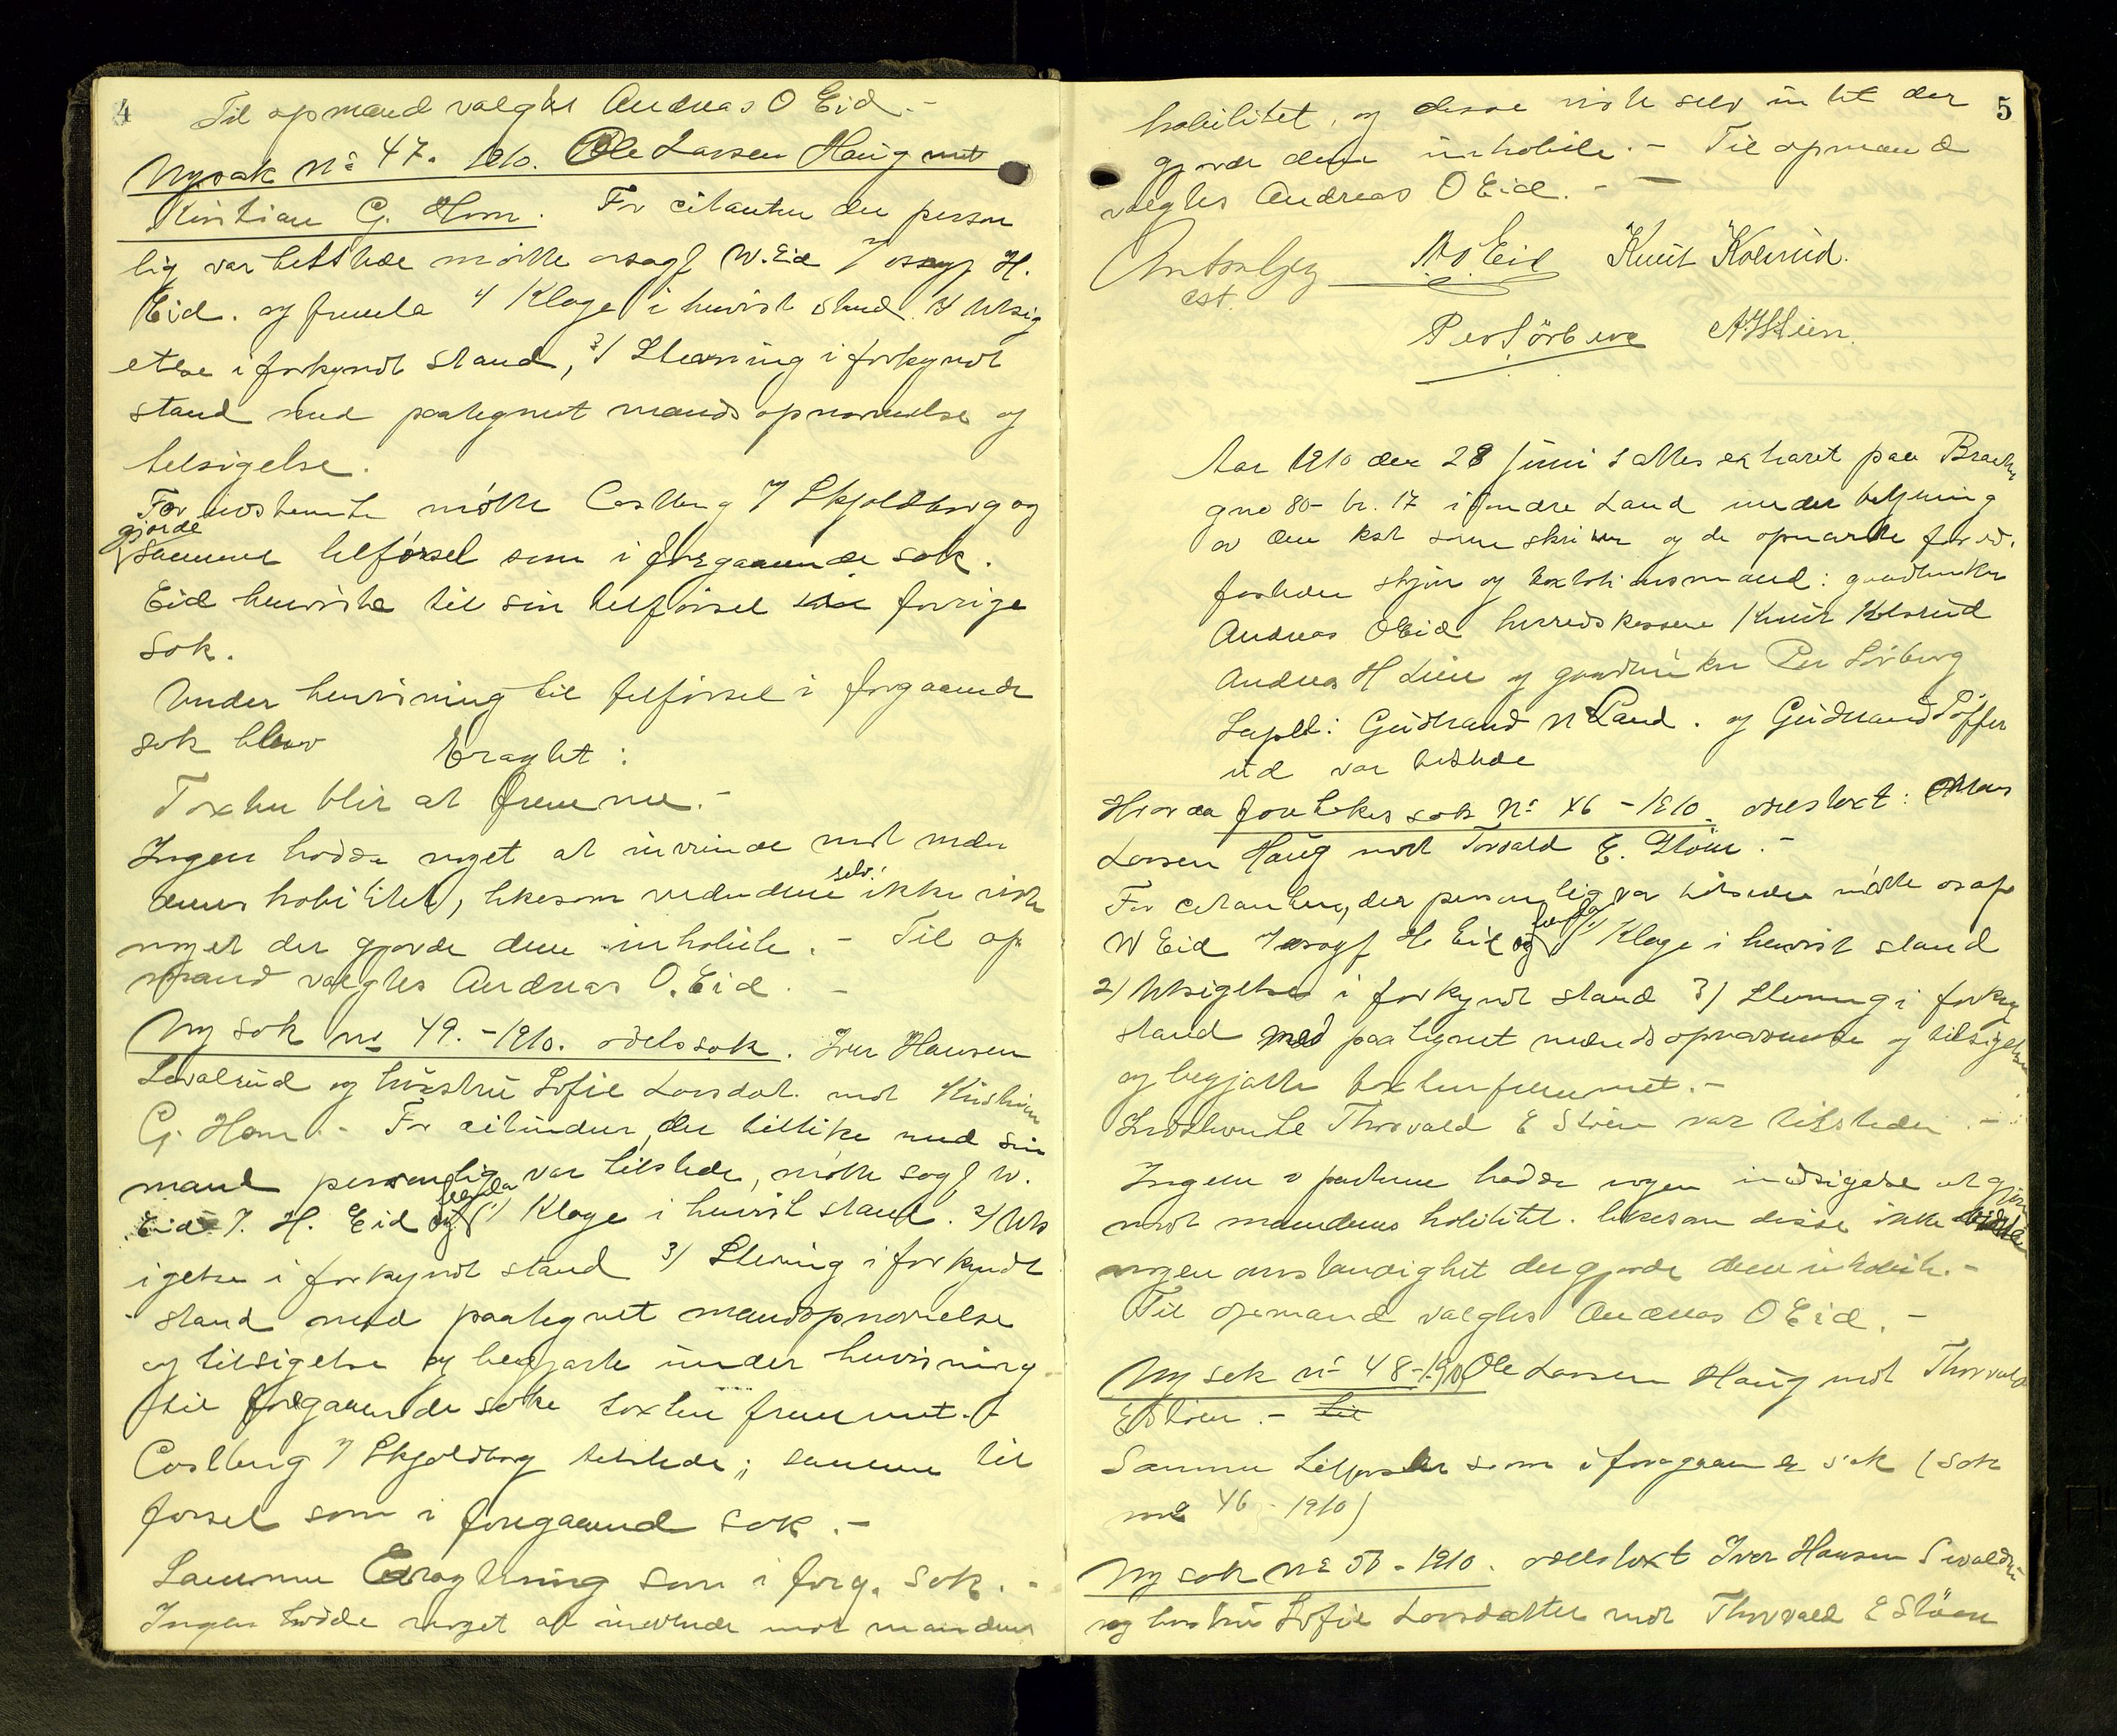 4
Til opmand valgtes Andreas O Eid. -
Ny sak No 47. 1910. Ole Larsen Haug mot
Kristian G. Horn. For citanten der person
lig var tilstede mötte orsagf W. Eid v/ orsagf H.
Eid. og fremla 1/ Klage i henvist stand. 2/ Utsig
else i forkyndt stand, 3/ Stevning i forkyndt
stand med paategnet mandsopnævnelse og
tilsigelse.
For indstevnte mötte Castberg v/ Skjoldborg og
gjorde
samme tilförsel som i foregaaende sak.
Eid henviste til sin tilförsel forrige
sak.
Under henvisning til tilförsel i foregaaende
sak blev Eragtet:
Taxten blir at fremme. -
Ingen hadde noget at indvende mot mæn
denes habilitet, likesom mændene selv ikke viste
noget der gjorde dem inhabile. - Til op
mand valgtes Andreas O. Eid. -
Ny sak No 49. - 1910. odelssak. Iver Hansen
Sevalrud og hustru Sofie Larsdat. mot Kristian
G. Horn. - For citindnen, der tillike med sin
mand personlig var tilstede, mötte sagf W.
Eid v. H. Eid og fremla 1/ Klage i henvist stand. 2/ Uts
igelse i forkyndt stand 3/ Stevning i forkyndt
stand med paategnet mandsopnævnelse
og tilsigelse og begjærte under henvisning
til foregaaende sake taxten fremmet. -
Castberg v/ Skjoldborg tilstede; samme til
førsel som i foregaaend sak. -
Samme Eragtning som i forg. sak. -
Ingen hadde noget at indvende mot mændenes
5
habilitet, og disse viste selv intet der
gjorde dem inhabile. - Til opmand
valgtes Andreas O Eid. - -
A O Eid Knut Kolsrud.
cst.
Per Sörberg A H Lien.
Aar 1910 den 28 juni sattes ex taret paa
gno 80 - br. 17 i Söndre Land under betjening
av den kst sorenskriver og de opnævnte
skjön og taxtationsmænd: gaardbruker
Andreas O Eid herredskasserer Knut Kolsrud
Andreas H Lien og gaardbruker Per Sörberg
Suppl: Gudbrand N Land. og Gudbrand Töffer
ud var tilstede
Hvorda foretokes sak No 46 - 1910. odelstaxt: Ole
Larsen Haug mot Torvald E. Stöen. -
For citanten, der personlig var tilstede mötte orsagf
W Eid v/ orsagf H Eid og fremla 1/ Klage i henvist stand
2/ Utsigelse i forkyndt stand 3/ Stevning i forky
stand med paategnet mændsopnævnelse og tilsigelse
og begjærte taxten fremmet. -
Indstevnte Thorvald E Stöen var tilstede. -
Ingen av partene hadde nogen indsigelse at gjöre
mot mændenes habilitet. likesom disse ikke
nogen omstændighet der gjorde dem inhabile. -
Til opmand valgtes Andreas O Eid. -
Ny sak No 48 - 1910 Ole Larsen Haug mot Thorvald
E Stöen. - til
Samme tilförsler som i foregaaende sak (sak
No 46 - 1910)
Ny sak No 50 - 1910. odelstaxt Iver Hansen Sevaldru
og hustru Sofie Larsdatter mot Thorvald E Stöen